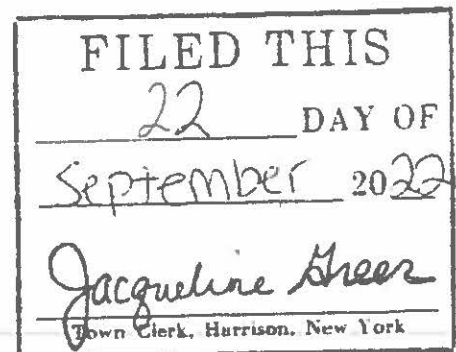 FILED THIS
22 DAY OF
September 2022
Jacqueline Greer
Town Clerk, Harrison, New York